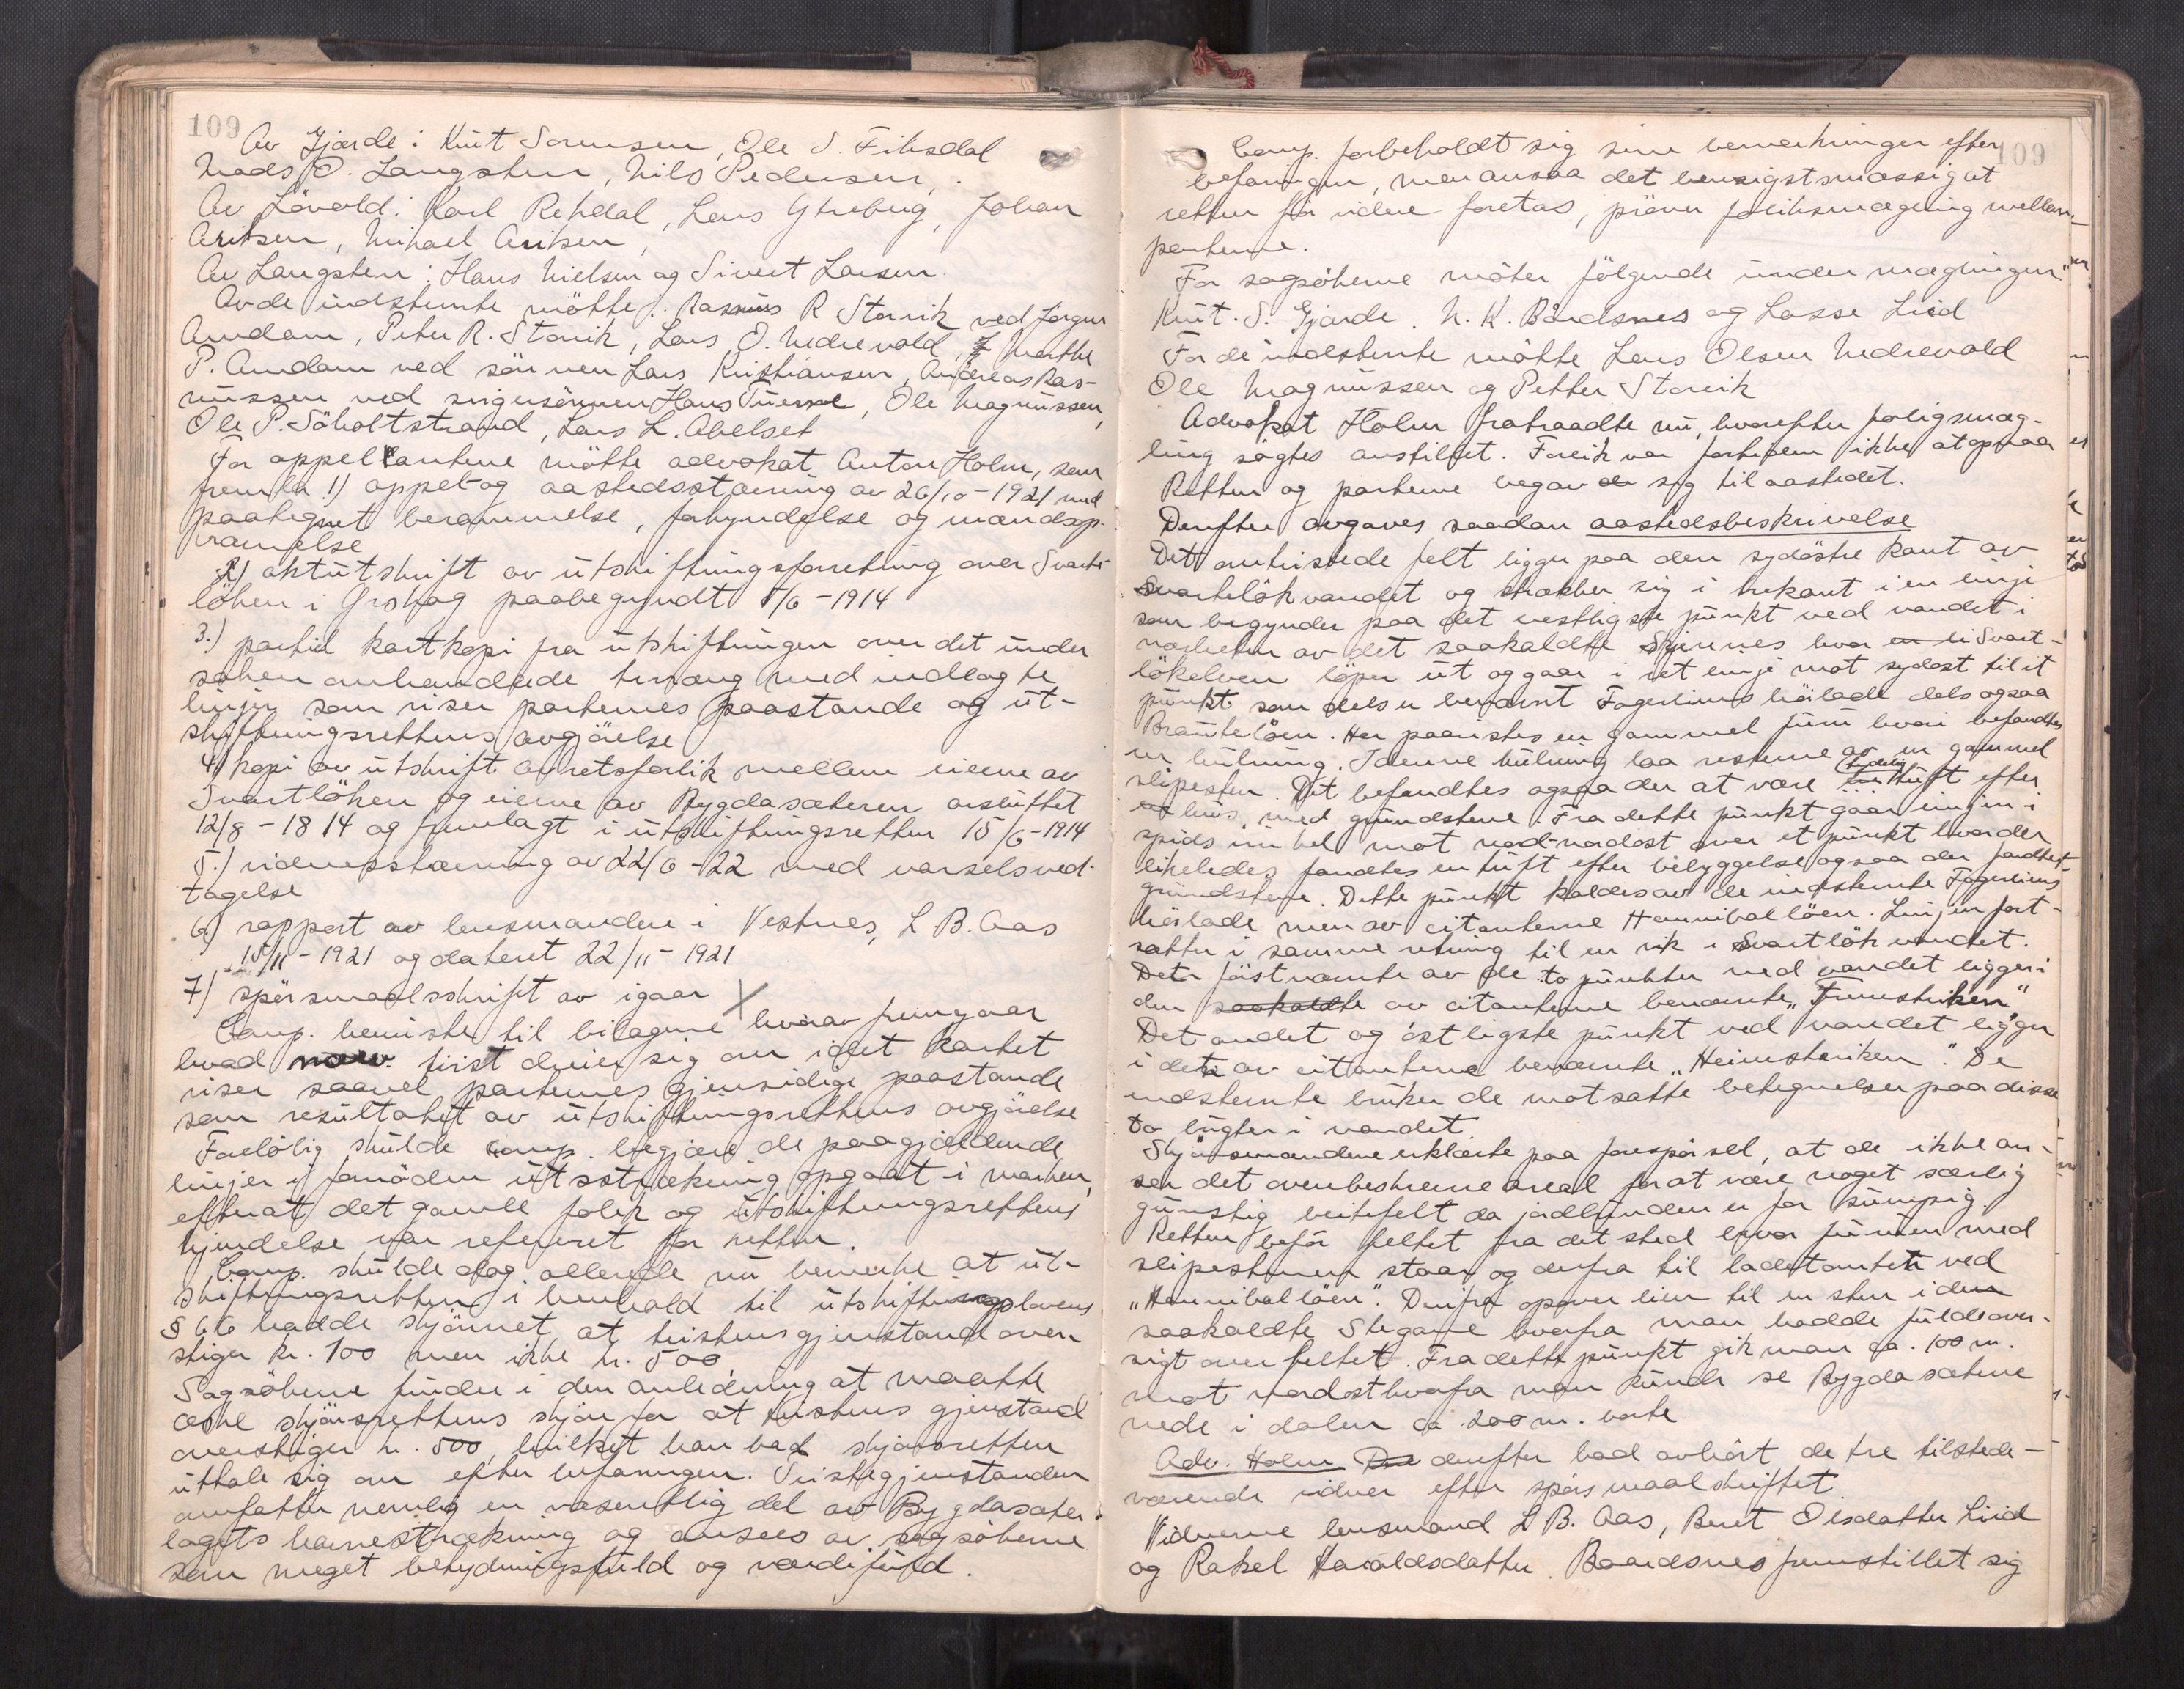 109
Av Gjærde: Knut Sørensen, Ole S. Fiksdal
Mads O. Langsten, Nils Pedersen,
Av Løvold: Karl Rekdal, Lars Ytreberg, Johan
Eriksen, Mikael Eriksen,
Av Langsten: Hans Nielsen og Sivert Larsen.
Av de indstevnte møtte: Rasmus R Storvik ved Jørgen
Amdam, Peter R. Storvik, Lars O. Nedrevold, Marthe
P. Amdam ved sønnen Lars Kristiansen, Andreas Ras-
mussen ved svigersønnen Hans Tuesnel, Ole Magnussen,
Ole P. Søholtstrand, Lars L. Abelset
For appellantene møtte advokat Anton Holm, som
fremla 1) appel- og aastedsstævning av 26/10-1921 med
paategnet berammelse, forkyndelse og mandsop-
nævnelse
2) aktutskrift av utskiftningsforretning over Svart-
løken i Grohag paabegyndt 8/6-1914
3.) partiel kartkopi fra utskiftningen over det under
saken omhandlede terræng med indlagte
linjer som viser parternes paastande og ut-
skiftningsrettens avgjørelse
4) kopi av utskrift av retsforlik mellem eierne av
Svartløken og eierne av Bygdasæteren avsluttet
12/8-1814 og fremlagt i utskiftningsretten 15/6-1914
5.) vidnesstævning av 22/6-22 med varselsved-
tagelse
6) rapport av lensmanden i Vestnes, L B. Aas
15/11-1921 og datert 22/11-1921
7) spørsmaalsskrift av igaar
Comp. henviste til bilagene hvorav fremgaar
hvad tvist dreier sig om idet kartet
viser saavel parternes gjensidige paastande
som resultatet av utskiftningsrettens avgjørelse
Foreløbig skulde comp. begjære de paagjældende
linjer i fornøden utstrækning opgaat i marken,
efterat det gamle forlik og utskiftningsrettens
kjendelse var referert for retten.
Comp. skulde dog allerede nu bemerke at ut-
skiftningsretten i henhold til utskiftningslovens
§ 66 hadde skjønnet, at tvistens gjenstand over-
stiger kr. 100 men ikke kr. 500
Sagsøkerne finder i den anledning at maatte
æske skjønsrettens skjøn for at tvistens gjenstand
overstiger kr. 500, hvilket han bad skjønsretten
uttale sig om efter befaringen. Tvistegjenstanden
omfatter nemlig en væsentlig del av Bygdasæter-
lagets havnestrækning og ansees av sagsøkerne
som meget betydningsfuld og værdifuld.
109
Comp. forbeholdt sig sine bemerkninger efter
befaringen, men ansaa det hensigtsmæssig at
retten før videre foretas, prøver forliksmægling mellem
parterne.
For sagsøkerne møter følgende under mæglingen
Knut. S. Gjærde. N. K. Baardsnes og Lasse Liid
For de indstevnte møtte Lars Olsen Nedrevold
Ole Magnussen og Petter Storvik
Advokat Holm fratraadte nu, hvorefter foligsmæg-
ling søgtes anstillet. Forlik var forhaanden ikke at opnaa
Retten og parterne begav sig til aastedet.
Derefter avgaves saadan aastedsbeskrivelse
Det omtvistede felt ligger paa den sydøstre kant av
Svartløkvandet og strækker sig i trekant i en linje
som begynder paa det vestligste punkt ved vandet i
nærheten av det saakaldte Skjernes hvor Svart-
løkelven løper ut og gaar i ret linje mot sydost til et
punkt som dels er benævnt Fagerlimshøilade dels ogsaa
Brauteløen. Her paavistes en gammel furu hvori befandtes
en hulning. I denne hulning laa resterne av en gammel
slipesten. Det befandtes ogsaa der at være tydelig tuft efter
et hus, med grundstene. Fra dette punkt gaar linjen i
spids vinkel mot nord-nordost over et punkt hvor der
likeledes fandtes en tuft efter bebyggelse ogsaa der fandtes
grundstene. Dette punkt kaldes av de indstevnte Fagerlims
høilade men av citanterne Hanniballøen. Linjen fort-
sætter i samme retning til en vik i Svartløkvandet.
Det først nævnte av de to punkter ved vandet ligger i
den saakaldte av citanterne benævnte "Fremsteviken"
Det andet og østligste punkt ved vandet ligger
i det av citanterne benævnte "Heimsteviken". De
indstevnte bruker de motsatte betegnelser paa disse
to bugter i vandet
Skjønsmændene erklærte paa forespørsel, at de ikke an-
ser det ovenbeskrevne areal for at være noget særlig
gunstig beitefelt da jordbunden er for sumpig.
Retten befor feltet fra det sted hvor furuen med
slipestenen staar og derfra til ladetomten ved
"Hanniballøen". Derifra opover lien til en sten i den
saakaldte Stegane hvorfra man hadde fuld over-
sigt over feltet. Fra dette punkt gik man ca. 100 m.
mot nordost hvorfra man kunde se Bygdasætrene
nede i dalen ca 200 m. borte
Adv. Holm derefter bad avhørt de tre tilstede-
værende vidner efter spørsmaalskriftet
Vidnerne lensmand L B. Aas, Beret Olsdatter Liid
og Rakel Haraldsdatter Baardsnes fremstillet sig